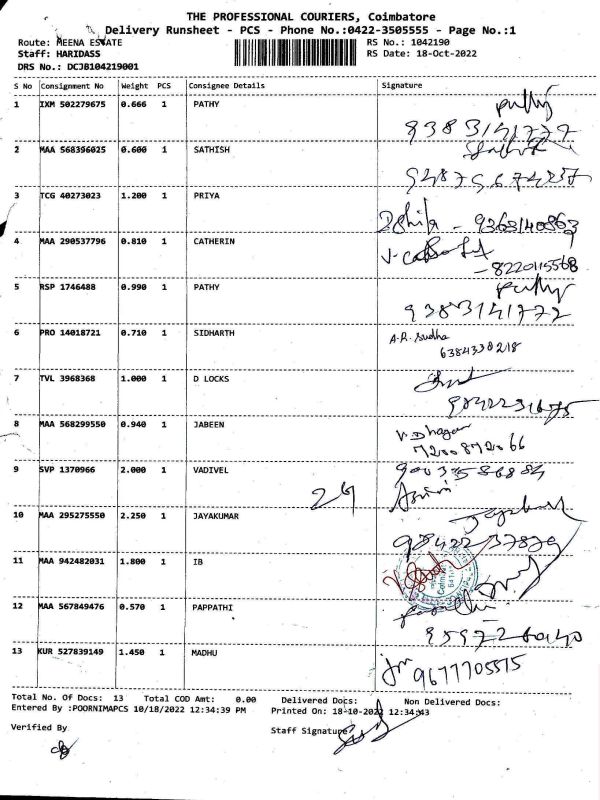 THE PROFESSIONAL COURIERS, Coimbatore
Delivery Runsheet - PCS - Phone No.:0422-3505555 - Page No.:1
Route: MEENA ESTATE
RS No.: 1042190
Staff: HARIDASS
RS Date: 18-Oct-2022
DRS No.: DCJB104219001
S No Consignment No Weight PCS Consignee Details Signature
1 IXM 502279675 0.666 1 PATHY
9383141772
2 MAA 568396025 0.600 1 SATHISH
3 TCG 40273023 1.200 1 PRIYA
4 MAA 290537796 0.810 1 CATHERIN
- 8220115568
5 RSP 1746488 0.990 1 PATHY
9383141772
6 PRO 14018721 0.710 1 SIDHARTH A.R. Sudha
6384330218
7 TVL 3968368 1.000 1 D LOCKS
8 MAA 568299550 0.940 1 JABEEN
7200872066
9 SVP 1370966 2.000 1 VADIVEL
10 MAA 295275550 2.250 1 JAYAKUMAR
9842237829
11 MAA 942482031 1.800 1 IB
12 MAA 567849476 0.570 1 PAPPATHI
13 KUR 527839149 1.450 1 MADHU
9677705575
Total No. Of Docs: 13 Total COD Amt: 0.00 Delivered Docs: Non Delivered Docs:
Entered By :POORNIMAPCS 10/18/2022 12:34:39 PM Printed On: 18-10-2022 12:34:43
Verified By
Staff Signature